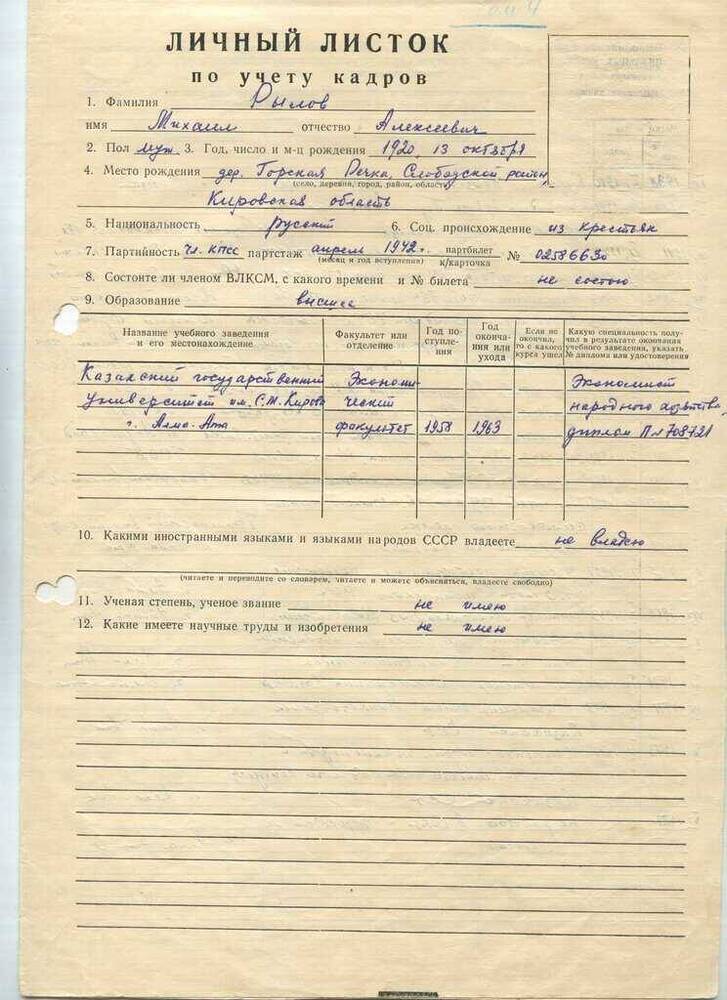 ЛИЧНЫЙ ЛИСТОК
по учету кадров
1. Фамилия Рылов
имя Михаил отчество Алексеевич
2. Пол муж 3. Год, число и м-ц рождения 1920, 13 октября
4. Место рождения дер. Горская Речка, Слободской район,
(село, деревня, город, район, область)
Кировская область
5. Национальность русский 6. Соц. происхождение из крестьян
7. Партийность чл. КПСС партстаж апрель 1942г. партбилет к/карточка № 02586630
(месяц и год вступления)
8. Состоите ли членом ВЛКСМ, с какого времени и № билета не состою
9. Образование высшее
Название учебного заведения и его местонахождение
Факультет или отделение
Год поступления
Год окончания или ухода
Если не окончил, то с какого курса ушел
Какую специальность получил в результате окончания учебного заведения, указать № диплома или удостоверения
Казахский государственный Экономи- Экономист
Университет им. С.М. Кирова ческий народного хозяйства,
г. Алма-Ата факультет 1958 1963 диплом П№708721
10. Какими иностранными языками и языками народов СССР владеете не владею
(читаете и переводите со словарем, читаете и можете объясняться, владеете свободно)
11. Ученая степень, ученое звание не имею
12. Какие имеете научные труды и изобретения не имею